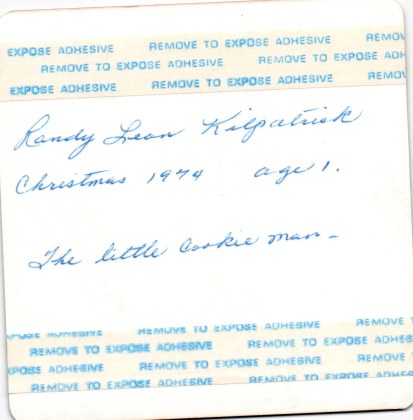 EXPOSE ADHESIVE REMOVE TO EXPOSE ADHESIVE REMOV
REMOVE TO EXPOSE ADHESIVE REMOVE TO EXPOSE ADH
EXPOSE ADHESIVE REMOVE TO EXPOSE ADHESIVE REMOV
Randy Leon Kilpatrick
Christmas 1974 age 1.
The little cookie man-
XPOSE ADHESIVE REMOVE TO EXPOSE ADHESIVE REMOVE T
REMOVE TO EXPOSE ADHESIVE REMOVE TO EXPOSE ADHES
POSE ADHESIVE REMOVE TO EXPOSE ADHESIVE REMOVE
REMOVE TO EXPOSE ADHESIVE REMOVE TO EXPOSE ADHES